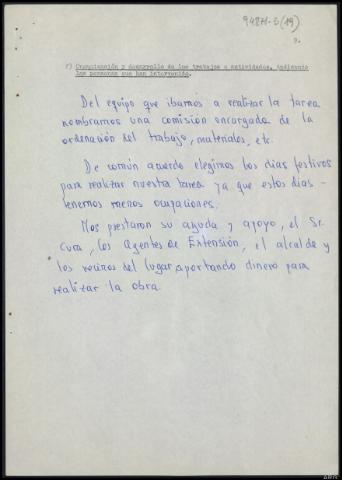 94871-3 (19)
c) Organización y desarrollo de los trabajos o actividades, indicando
las personas que han intervenido.
Del equipo que ibamos a realizar la tarea
nombramos una comisión encargada de la
ordenación del trabajo, materiales, etc.
De común acuerdo elegimos los dias festivos
para realizar nuestra tarea ya que estos dias -
tenemos menos ocupaciones.
Nos prestaron su ayuda y apoyo, el Sr.
Cura, los Agentes de Extensión, el alcalde y
los vecinos del lugar aportando dinero para
realizar la obra.